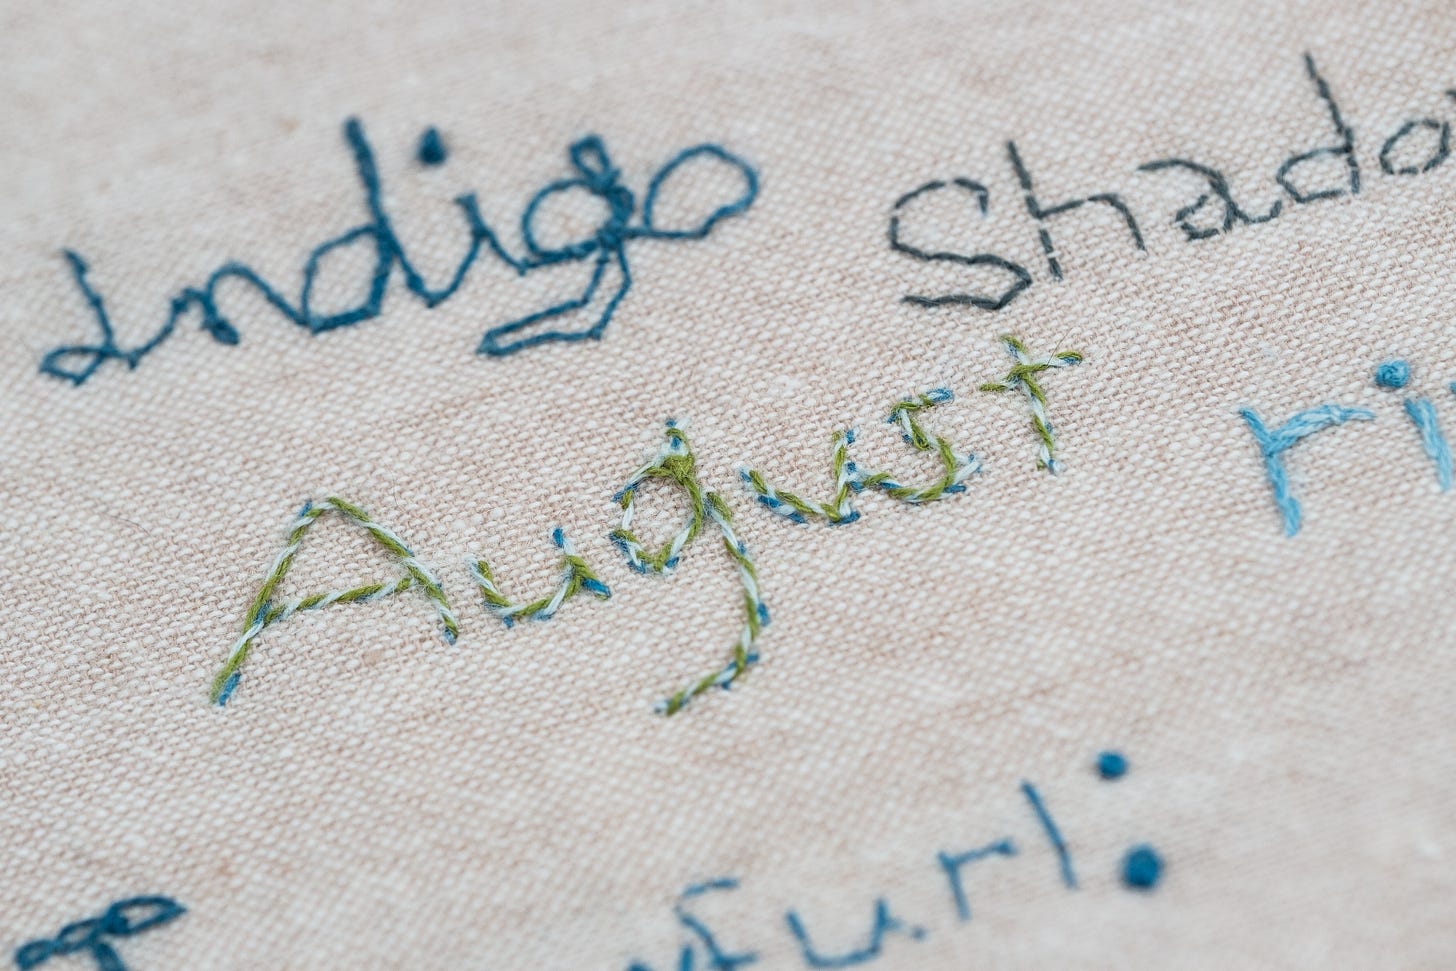 Indigo Shado
August ri
furl: